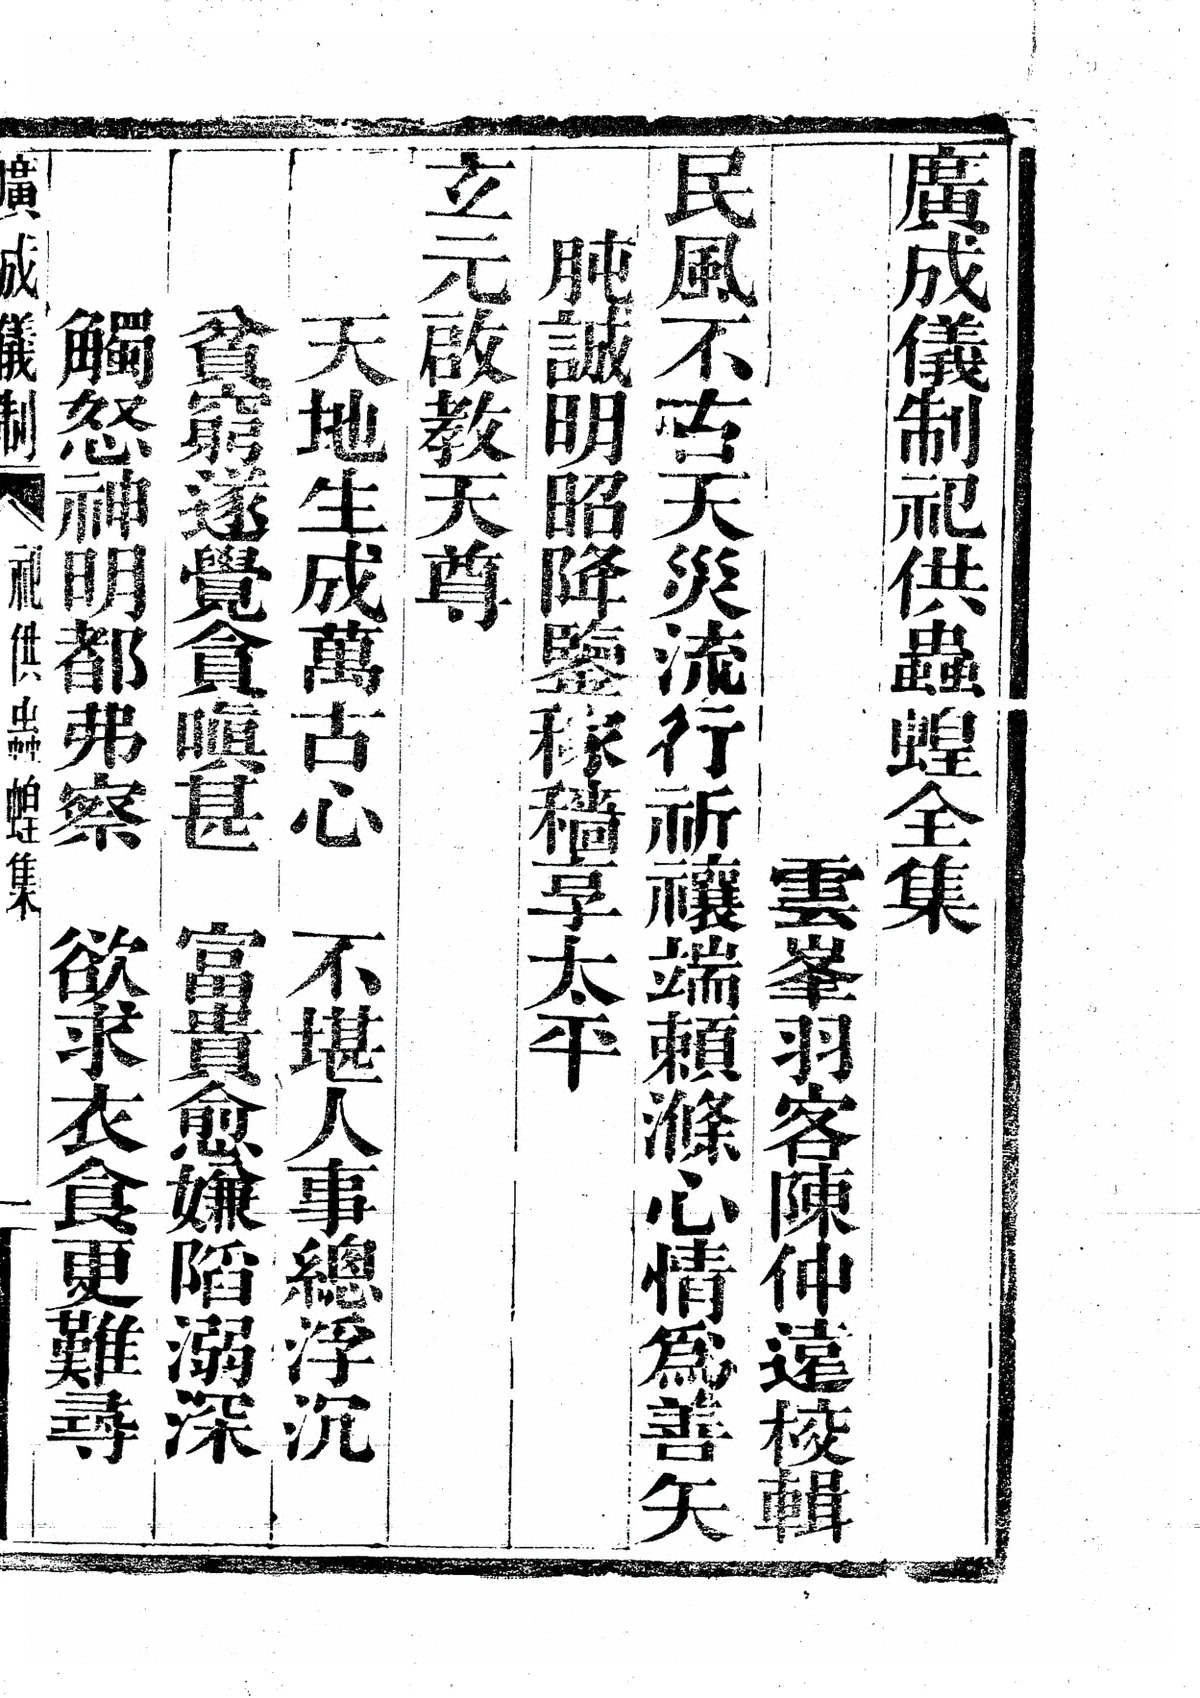 廣成儀制祀供蟲蝗全集
雲峯羽客陳仲遠校輯
民風不古天災流行祈禳端賴滌心情爲善矢
肫誠明昭降鑒稼穡享太平
立元啟教天尊
天地生成萬古心　不堪人事總浮沉
貧窮遂覺貪嗔甚　富貴愈嫌陷溺深
觸怒神明都弗察　欲求衣食更難尋
廣成儀制　祀供虫蝗集　一